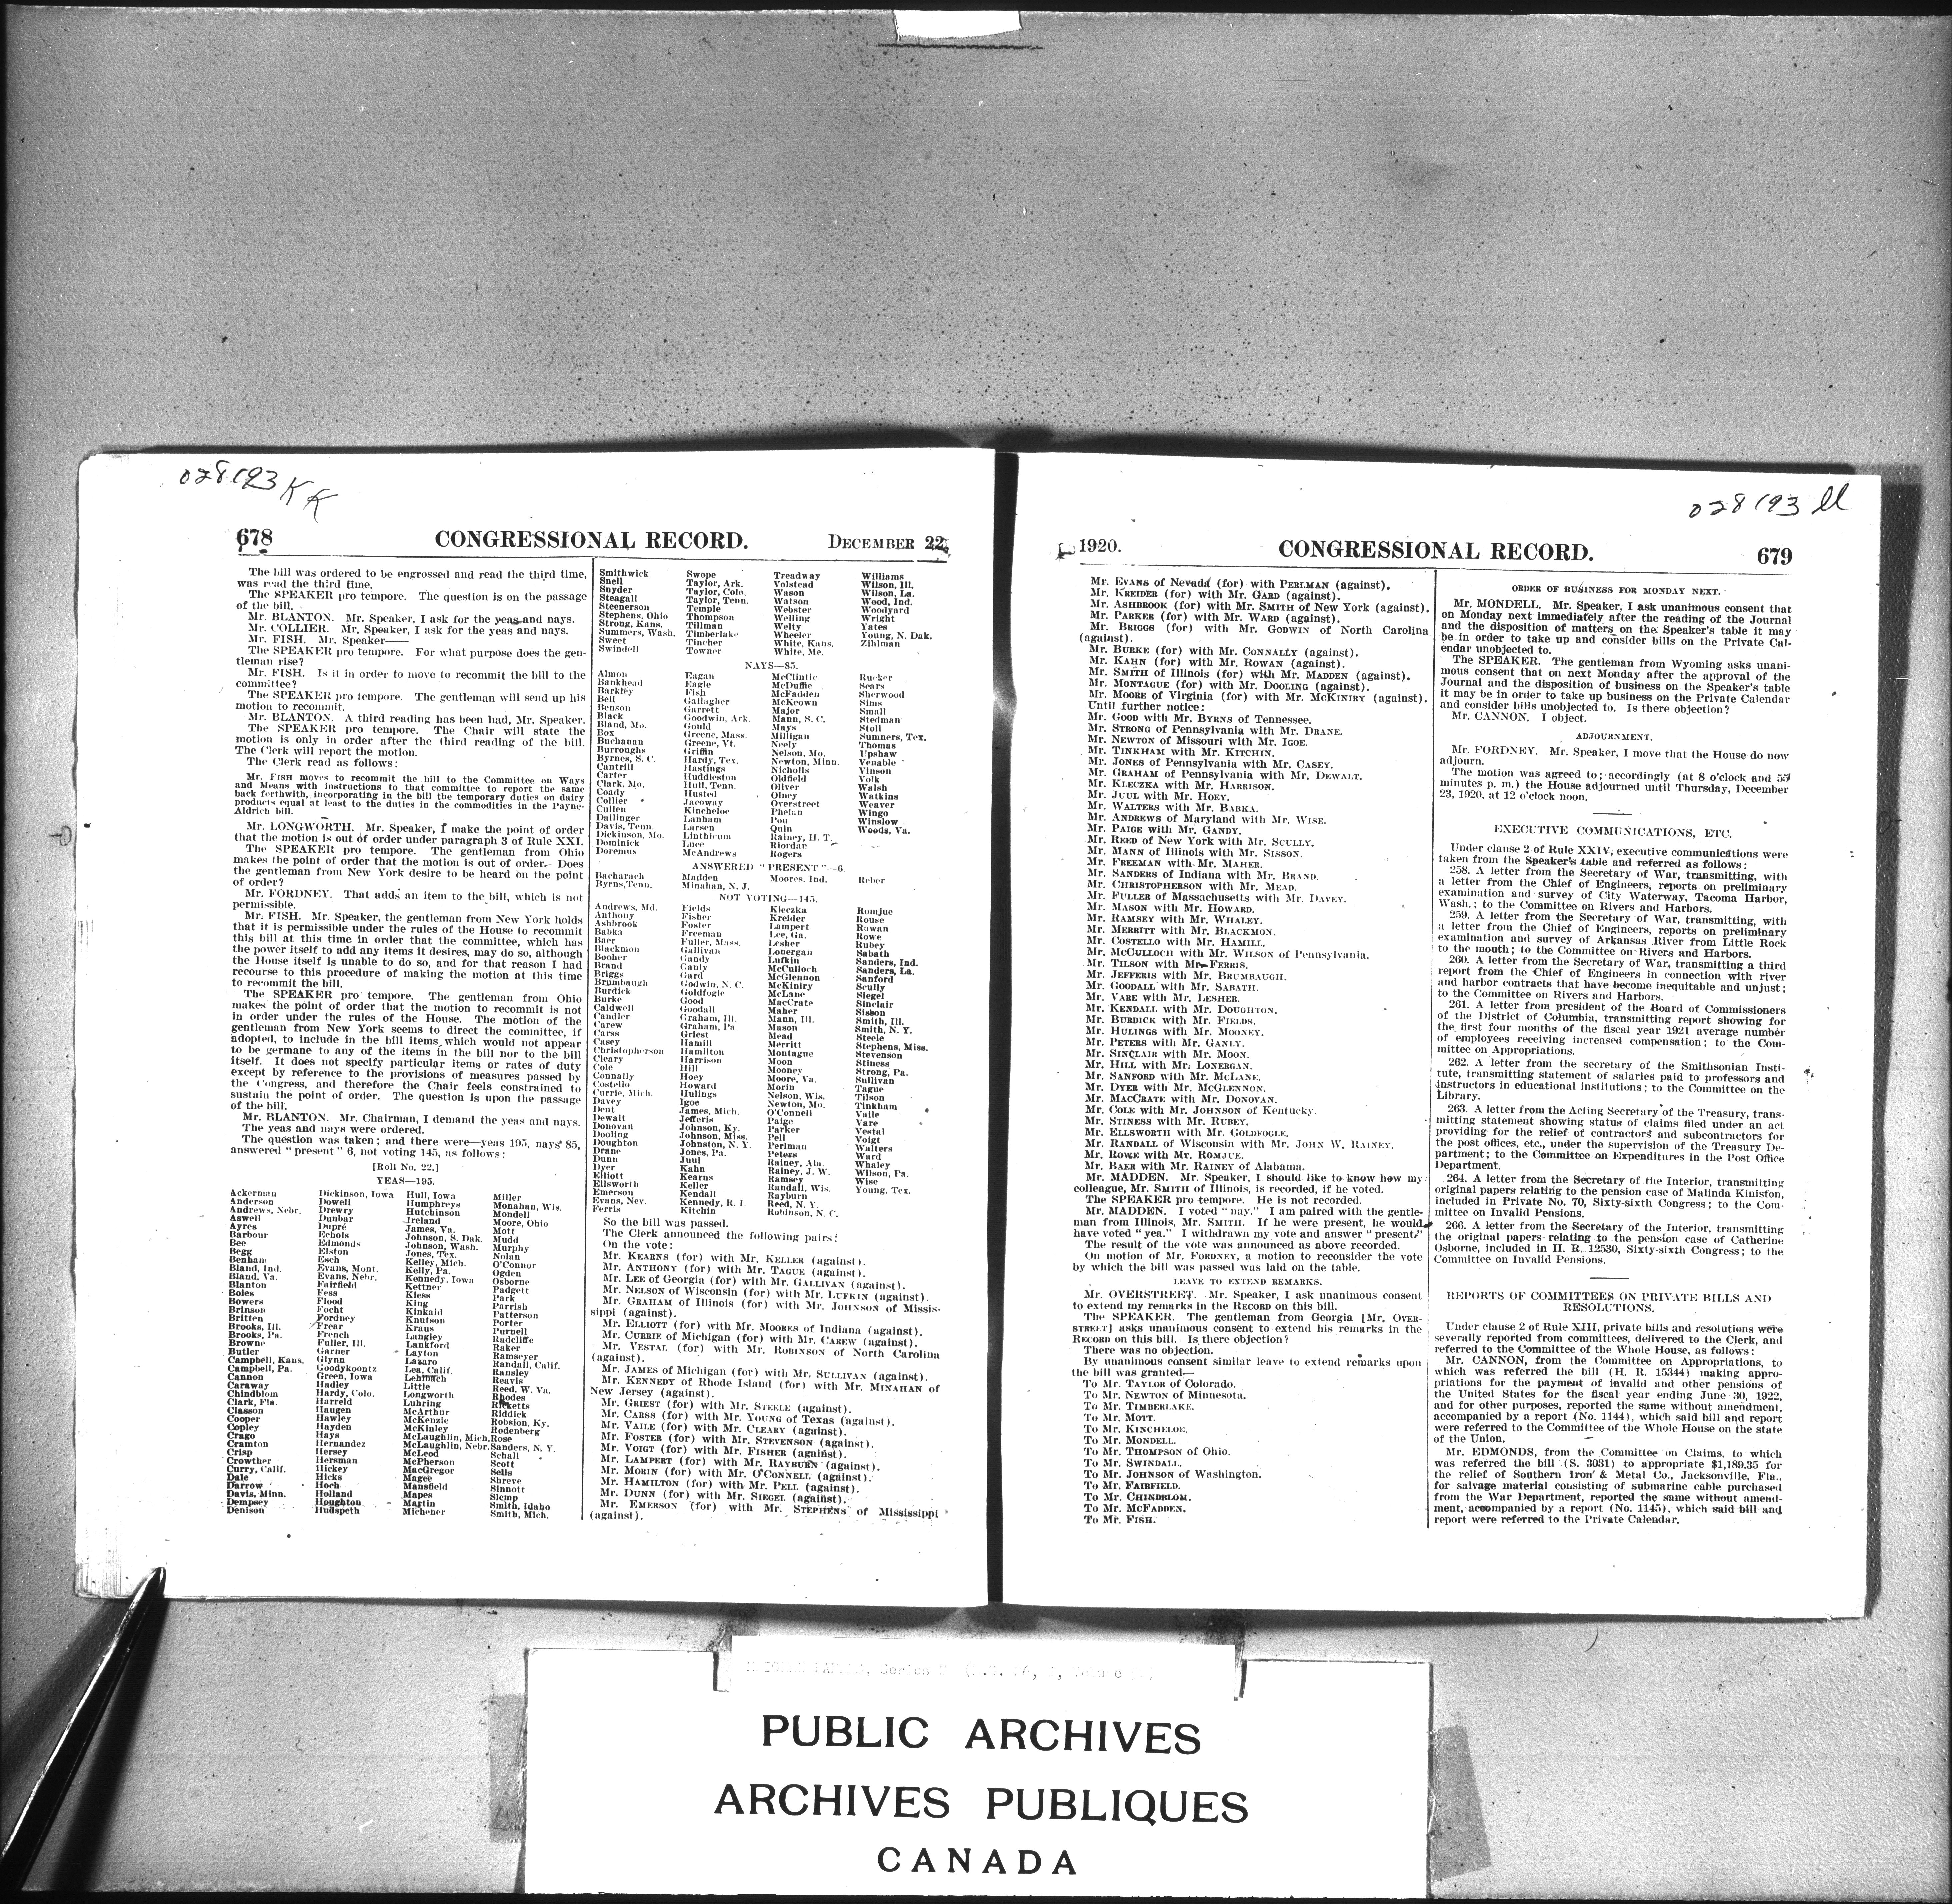 028193 KK
678
CONGRESSIONAL RECORD.
DECEMBER 22,
The bill was ordered to be engrossed and read the third time,
was read the third time.
The SPEAKER pro tempore. The question is on the passage
of the bill.
Mr. BLANTON. Mr. Speaker, I ask for the yeas and nays.
Mr. COLLIER. Mr. Speaker, I ask for the yeas and nays.
Mr. FISH. Mr. Speaker——
The SPEAKER pro tempore. For what purpose does the gen-
tleman rise?
Mr. FISH. Is it in order to move to recommit the bill to the
committee?
The SPEAKER pro tempore. The gentleman will send up his
motion to recommit.
Mr. BLANTON. A third reading has been had, Mr. Speaker.
The SPEAKER pro tempore. The Chair will state the
motion is only in order after the third reading of the bill.
The Clerk will report the motion.
The Clerk read as follows:
Mr. FISH moves to recommit the bill to the Committee on Ways
and Means with instructions to that committee to report the same
back forthwith, incorporating in the bill the temporary duties on dairy
products equal at least to the duties in the commodities in the Payne-
Aldrich bill.
Mr. LONGWORTH. Mr. Speaker, I make the point of order
that the motion is out of order under paragraph 3 of Rule XXI.
The SPEAKER pro tempore. The gentleman from Ohio
makes the point of order that the motion is out of order. Does
the gentleman from New York desire to be heard on the point
of order?
Mr. FORDNEY. That adds an item to the bill, which is not
permissible.
Mr. FISH. Mr. Speaker, the gentleman from New York holds
that it is permissible under the rules of the House to recommit
this bill at this time in order that the committee, which has
the power itself to add any items it desires, may do so, although
the House itself is unable to do so, and for that reason I had
recourse to this procedure of making the motion at this time
to recommit the bill.
The SPEAKER pro tempore. The gentleman from Ohio
makes the point of order that the motion to recommit is not
in order under the rules of the House. The motion of the
gentleman from New York seems to direct the committee, if
adopted, to include in the bill items which would not appear
to be germane to any of the items in the bill nor to the bill
itself. It does not specify particular items or rates of duty
except by reference to the provisions of measures passed by
the Congress, and therefore the Chair feels constrained to
sustain the point of order. The question is upon the passage
of the bill.
Mr. BLANTON. Mr. Chairman, I demand the yeas and nays.
The yeas and nays were ordered.
The question was taken; and there were—yeas 195, nays 85,
answered "present" 6, not voting 145, as follows:
[Roll No. 22.]
YEAS—195.
Ackerman
Anderson
Andrews, Nebr.
Aswell
Ayres
Barbour
Bee
Begg
Benham
Bland, Ind.
Bland, Va.
Blanton
Boies
Bowers
Brinson
Britten
Brooks, Ill.
Brooks, Pa.
Browne
Butler
Campbell, Kans.
Campbell, Pa.
Cannon
Caraway
Chindblom
Clark, Fla.
Classon
Cooper
Copley
Crago
Cramton
Crisp
Crowther
Curry, Calif.
Dale
Darrow
Davis, Minn.
Dempsey
Denison
Dickinson, Iowa
Dowell
Drewry
Dunbar
Dupré
Echols
Edmonds
Elston
Esch
Evans, Mont.
Evans, Nebr.
Fairfield
Fess
Flood
Focht
Fordney
Frear
French
Fuller, Ill.
Garner
Glynn
Goodykoontz
Green, Iowa
Hadley
Hardy, Colo.
Harreld
Haugen
Hawley
Hayden
Hays
Hernandez
Hersey
Hersman
Hickey
Hicks
Hoch
Holland
Houghton
Hudspeth
Hull, Iowa
Humphreys
Hutchinson
Ireland
James, Va.
Johnson, S. Dak.
Johnson, Wash.
Jones, Tex.
Kelley, Mich.
Kelly, Pa.
Kennedy, Iowa
Kettner
Kiess
King
Kinkaid
Knutson
Kraus
Langley
Lankford
Layton
Lazaro
Lea, Calif.
Lehlbach
Little
Longworth
Luhring
McArthur
McKenzie
McKinley
McLaughlin, Mich.
McLaughlin, Nebr.
McLeod
McPherson
MacGregor
Magee
Mansfield
Mapes
Martin
Michener
Miller
Monahan, Wis.
Mondell
Moore, Ohio
Mott
Mudd
Murphy
Nolan
O'Connor
Ogden
Osborne
Padgett
Park
Parrish
Patterson
Porter
Purnell
Radcliffe
Raker
Ramseyer
Randall, Calif.
Ransley
Reavis
Reed, W. Va.
Rhodes
Ricketts
Riddick
Robsion, Ky.
Rodenberg
Rose
Sanders, N. Y.
Schall
Scott
Sells
Shreve
Sinnott
Slemp
Smith, Idaho
Smith, Mich.
Smithwick
Snell
Snyder
Steagall
Steenerson
Stephens, Ohio
Strong, Kans.
Summers, Wash.
Sweet
Swindell
Swope
Taylor, Ark.
Taylor, Colo.
Taylor, Tenn.
Temple
Thompson
Tillman
Timberlake
Tincher
Towner
Treadway
Volstead
Wason
Watson
Webster
Welling
Welty
Wheeler
White, Kans.
White, Me.
Williams
Wilson, Ill.
Wilson, La.
Wood, Ind.
Woodyard
Wright
Yates
Young, N. Dak.
Zihlman
NAYS—85.
Almon
Bankhead
Barkley
Bell
Benson
Black
Bland, Mo.
Box
Buchanan
Burroughs
Byrnes, S. C.
Cantrill
Carter
Clark, Mo.
Coady
Collier
Cullen
Dallinger
Davis, Tenn.
Dickinson, Mo.
Dominick
Doremus
Eagan
Eagle
Fish
Gallagher
Garrett
Goodwin, Ark.
Gould
Greene, Mass.
Greene, Vt.
Griffin
Hardy, Tex.
Hastings
Huddleston
Hull, Tenn.
Husted
Jacoway
Kincheloe
Lanham
Larsen
Linthicum
Luce
McAndrews
McClintic
McDuffie
McFadden
McKeown
Major
Mann, S. C.
Mays
Milligan
Neely
Nelson, Mo.
Newton, Minn.
Nicholls
Oldfield
Oliver
Olney
Overstreet
Phelan
Pou
Quin
Rainey, H. T.
Riordan
Rogers
Rucker
Sears
Sherwood
Sims
Small
Stedman
Stoll
Sumners, Tex.
Thomas
Upshaw
Venable
Vinson
Volk
Walsh
Watkins
Weaver
Wingo
Winslow
Woods, Va.
ANSWERED "PRESENT"—6.
Bacharach
Byrns, Tenn.
Madden
Minahan, N. J.
Moores, Ind.
Reber
NOT VOTING—145.
Andrews, Md.
Anthony
Ashbrook
Babka
Baer
Blackmon
Booher
Brand
Briggs
Brumbaugh
Burdick
Burke
Caldwell
Candler
Carew
Carss
Casey
Christopherson
Cleary
Cole
Connally
Costello
Currie, Mich.
Davey
Dent
Dewalt
Donovan
Dooling
Doughton
Drane
Dunn
Dyer
Elliott
Ellsworth
Emerson
Evans, Nev.
Ferris
Fields
Fisher
Foster
Freeman
Fuller, Mass.
Gallivan
Gandy
Ganly
Gard
Godwin, N. C.
Goldfogle
Good
Goodall
Graham, Ill.
Graham, Pa.
Griest
Hamill
Hamilton
Harrison
Hill
Hoey
Howard
Hulings
Igoe
James, Mich.
Jefferis
Johnson, Ky.
Johnson, Miss.
Johnston, N. Y.
Jones, Pa.
Juul
Kahn
Kearns
Keller
Kendall
Kennedy, R. I.
Kitchin
Kleczka
Kreider
Lampert
Lee, Ga.
Lesher
Lonergan
Lufkin
McCulloch
McGlennon
McKiniry
McLane
MacCrate
Maher
Mann, Ill.
Mason
Mead
Merritt
Montague
Moon
Mooney
Moore, Va.
Morin
Nelson, Wis.
Newton, Mo.
O'Connell
Paige
Parker
Pell
Perlman
Peters
Rainey, Ala.
Rainey, J. W.
Ramsey
Randall, Wis.
Rayburn
Reed, N. Y.
Robinson, N. C.
Romjue
Rouse
Rowan
Rowe
Rubey
Sabath
Sanders, Ind.
Sanders, La.
Sanford
Scully
Siegel
Sinclair
Sisson
Smith, Ill.
Smith, N. Y.
Steele
Stephens, Miss.
Stevenson
Stiness
Strong, Pa.
Sullivan
Tague
Tilson
Tinkham
Vaile
Vare
Vestal
Voigt
Walters
Ward
Whaley
Wilson, Pa.
Wise
Young, Tex.
So the bill was passed.
The Clerk announced the following pairs:
On the vote:
Mr. KEARNS (for) with Mr. KELLER (against).
Mr. ANTHONY (for) with Mr. TAGUE (against).
Mr. LEE of Georgia (for) with Mr. GALLIVAN (against).
Mr. NELSON of Wisconsin (for) with Mr. LUFKIN (against).
Mr. GRAHAM of Illinois (for) with Mr. JOHNSON of Missis-
sippi (against).
Mr. ELLIOTT (for) with Mr. MOORES of Indiana (against).
Mr. CURRIE of Michigan (for) with Mr. CAREW (against).
Mr. VESTAL (for) with Mr. ROBINSON of North Carolina
(against).
Mr. JAMES of Michigan (for) with Mr. SULLIVAN (against).
Mr. KENNEDY of Rhode Island (for) with Mr. MINAHAN of
New Jersey (against).
Mr. GRIEST (for) with Mr. STEELE (against).
Mr. CARSS (for) with Mr. YOUNG of Texas (against).
Mr. VAILE (for) with Mr. CLEARY (against).
Mr. FOSTER (for) with Mr. STEVENSON (against).
Mr. VOIGT (for) with Mr. FISHER (against).
Mr. LAMPERT (for) with Mr. RAYBURN (against).
Mr. MORIN (for) with Mr. O'CONNELL (against).
Mr. HAMILTON (for) with Mr. PELL (against).
Mr. DUNN (for) with Mr. SIEGEL (against).
Mr. EMERSON (for) with Mr. STEPHENS of Mississippi
(against).
028193 ll
1920.
CONGRESSIONAL RECORD.
679
Mr. EVANS of Nevada (for) with PERLMAN (against).
Mr. KREIDER (for) with Mr. GARD (against).
Mr. ASHBROOK (for) with Mr. SMITH of New York (against).
Mr. PARKER (for) with Mr. WARD (against).
Mr. BRIGGS (for) with Mr. GODWIN of North Carolina
(against).
Mr. BURKE (for) with Mr. CONNALLY (against).
Mr. KAHN (for) with Mr. ROWAN (against).
Mr. SMITH of Illinois (for) with Mr. MADDEN (against).
Mr. MONTAGUE (for) with Mr. DOOLING (against).
Mr. MOORE of Virginia (for) with Mr. MCKINIRY (against).
Until further notice:
Mr. GOOD with Mr. BYRNS of Tennessee.
Mr. STRONG of Pennsylvania with Mr. DRANE.
Mr. NEWTON of Missouri with Mr. IGOE.
Mr. TINKHAM with Mr. KITCHIN.
Mr. JONES of Pennsylvania with Mr. CASEY.
Mr. GRAHAM of Pennsylvania with Mr. DEWALT.
Mr. KLECZKA with Mr. HARRISON.
Mr. JUUL with Mr. HOEY.
Mr. WALTERS with Mr. BABKA.
Mr. ANDREWS of Maryland with Mr. WISE.
Mr. PAIGE with Mr. GANDY.
Mr. REED of New York with Mr. SCULLY.
Mr. MANN of Illinois with Mr. SISSON.
Mr. FREEMAN with Mr. MAHER.
Mr. SANDERS of Indiana with Mr. BRAND.
Mr. CHRISTOPHERSON with Mr. MEAD.
Mr. FULLER of Massachusetts with Mr. DAVEY.
Mr. MASON with Mr. HOWARD.
Mr. RAMSEY with Mr. WHALEY.
Mr. MERRITT with Mr. BLACKMON.
Mr. COSTELLO with Mr. HAMILL.
Mr. MCCULLOCH with Mr. WILSON of Pennsylvania.
Mr. TILSON with Mr. FERRIS.
Mr. JEFFERIS with Mr. BRUMBAUGH.
Mr. GOODALL with Mr. SABATH.
Mr. VARE with Mr. LESHER.
Mr. KENDALL with Mr. DOUGHTON.
Mr. BURDICK with Mr. FIELDS.
Mr. HULINGS with Mr. MOONEY.
Mr. PETERS with Mr. GANLY.
Mr. SINCLAIR with Mr. MOON.
Mr. HILL with Mr. LONERGAN.
Mr. SANFORD with Mr. MCLANE.
Mr. DYER with Mr. MCGLENNON.
Mr. MACCRATE with Mr. DONOVAN.
Mr. COLE with Mr. JOHNSON of Kentucky.
Mr. STINESS with Mr. RUBEY.
Mr. ELLSWORTH with Mr. GOLDFOGLE.
Mr. RANDALL of Wisconsin with Mr. JOHN W. RAINEY.
Mr. ROWE with Mr. ROMJUE.
Mr. BAER with Mr. RAINEY of Alabama.
Mr. MADDEN. Mr. Speaker, I should like to know how my
colleague, Mr. SMITH of Illinois, is recorded, if he voted.
The SPEAKER pro tempore. He is not recorded.
Mr. MADDEN. I voted "nay." I am paired with the gentle-
man from Illinois, Mr. SMITH. If he were present, he would
have voted "yea." I withdrawn my vote and answer "present."
The result of the vote was announced as above recorded.
On motion of Mr. FORDNEY, a motion to reconsider the vote
by which the bill was passed was laid on the table.
LEAVE TO EXTEND REMARKS.
Mr. OVERSTREET. Mr. Speaker, I ask unanimous consent
to extend my remarks in the RECORD on this bill.
The SPEAKER. The gentleman from Georgia [Mr. OVER-
STREET] asks unanimous consent to extend his remarks in the
RECORD on this bill. Is there objection?
There was no objection.
By unanimous consent similar leave to extend remarks upon
the bill was granted—
To Mr. TAYLOR of Colorado.
To Mr. NEWTON of Minnesota.
To Mr. TIMBERLAKE.
To Mr. MOTT.
To Mr. KINCHELOE.
To Mr. MONDELL.
To Mr. THOMPSON of Ohio.
To Mr. SWINDALL.
To Mr. JOHNSON of Washington.
To Mr. FAIRFIELD.
To Mr. CHINDBLOM.
To Mr. MCFADDEN.
To Mr. FISH.
ORDER OF BUSINESS FOR MONDAY NEXT.
Mr. MONDELL. Mr. Speaker, I ask unanimous consent that
on Monday next immediately after the reading of the Journal
and the disposition of matters on the Speaker's table it may
be in order to take up and consider bills on the Private Cal-
endar unobjected to.
The SPEAKER. The gentleman from Wyoming asks unani-
mous consent that on next Monday after the approval of the
Journal and the disposition of business on the Speaker's table
it may be in order to take up business on the Private Calendar
and consider bills unobjected to. Is there objection?
Mr. CANNON. I object.
ADJOURNMENT.
Mr. FORDNEY. Mr. Speaker, I move that the House do now
adjourn.
The motion was agreed to; accordingly (at 8 o'clock and 55
minutes p. m.) the House adjourned until Thursday, December
23, 1920, at 12 o'clock noon.
EXECUTIVE COMMUNICATIONS, ETC.
Under clause 2 of Rule XXIV, executive communications were
taken from the Speaker's table and referred as follows:
258. A letter from the Secretary of War, transmitting, with
a letter from the Chief of Engineers, reports on preliminary
examination and survey of City Waterway, Tacoma Harbor,
Wash.; to the Committee on Rivers and Harbors.
259. A letter from the Secretary of War, transmitting, with
a letter from the Chief of Engineers, reports on preliminary
examination and survey of Arkansas River from Little Rock
to the mouth; to the Committee on Rivers and Harbors.
260. A letter from the Secretary of War, transmitting a third
report from the Chief of Engineers in connection with river
and harbor contracts that have become inequitable and unjust;
to the Committee on Rivers and Harbors.
261. A letter from president of the Board of Commissioners
of the District of Columbia, transmitting report showing for
the first four months of the fiscal year 1921 average number
of employees receiving increased compensation; to the Com-
mittee on Appropriations.
262. A letter from the secretary of the Smithsonian Insti-
tute, transmitting statement of salaries paid to professors and
instructors in educational institutions; to the Committee on the
Library.
263. A letter from the Acting Secretary of the Treasury, trans-
mitting statement showing status of claims filed under an act
providing for the relief of contractors and subcontractors for
the post offices, etc., under the supervision of the Treasury De-
partment; to the Committee on Expenditures in the Post Office
Department.
264. A letter from the Secretary of the Interior, transmitting
original papers relating to the pension case of Malinda Kiniston,
included in Private No. 70, Sixty-sixth Congress; to the Com-
mittee on Invalid Pensions.
266. A letter from the Secretary of the Interior, transmitting
the original papers relating to the pension case of Catherine
Osborne, included in H. R. 12530, Sixty-sixth Congress; to the
Committee on Invalid Pensions.
REPORTS OF COMMITTEES ON PRIVATE BILLS AND
RESOLUTIONS.
Under clause 2 of Rule XIII, private bills and resolutions were
severally reported from committees, delivered to the Clerk, and
referred to the Committee of the Whole House, as follows:
Mr. CANNON, from the Committee on Appropriations, to
which was referred the bill (H. R. 15344) making appro-
priations for the payment of invalid and other pensions of
the United States for the fiscal year ending June 30, 1922,
and for other purposes, reported the same without amendment,
accompanied by a report (No. 1144), which said bill and report
were referred to the Committee of the Whole House on the state
of the Union.
Mr. EDMONDS, from the Committee on Claims, to which
was referred the bill (S. 3031) to appropriate $1,189.35 for
the relief of Southern Iron & Metal Co., Jacksonville, Fla.,
for salvage material consisting of submarine cable purchased
from the War Department, reported the same without amend-
ment, accompanied by a report (No. 1145), which said bill and
report were referred to the Private Calendar.
PUBLIC ARCHIVES
ARCHIVES PUBLIQUES
CANADA